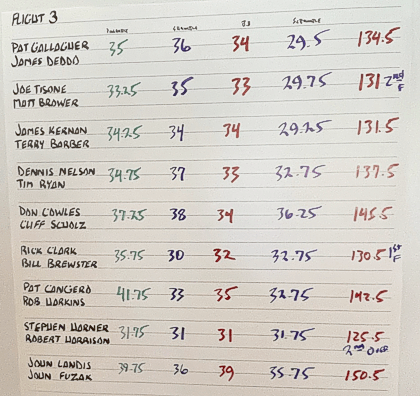 FLIGHT 3
SCRAMBLE BB SCRAMBLE
PAT GALLAGHER 35 36 34 29.5 134.5
JAMES DEDDO
JOE TISONE 33.25 35 33 29.75 131 2nd F
MATT BROWER
JAMES KERNON 34.25 34 34 29.25 131.5
TERRY BARBER
DENNIS NELSON 34.75 37 33 32.75 137.5
TIM RYAN
DON COWLES 37.25 38 34 36.25 145.5
CLIFF SCHOLZ
RICK CLARK 35.75 30 32 32.75 130.5 1st F
BILL BREWSTER
PAT CANGERO 41.75 33 35 32.75 142.5
ROB HARKINS
STEPHEN HORNER 31.75 31 31 31.75 125.5
ROBERT HARRISON 2nd OVER
JOHN LANDIS 39.75 36 39 35.75 150.5
JOHN FUZAK